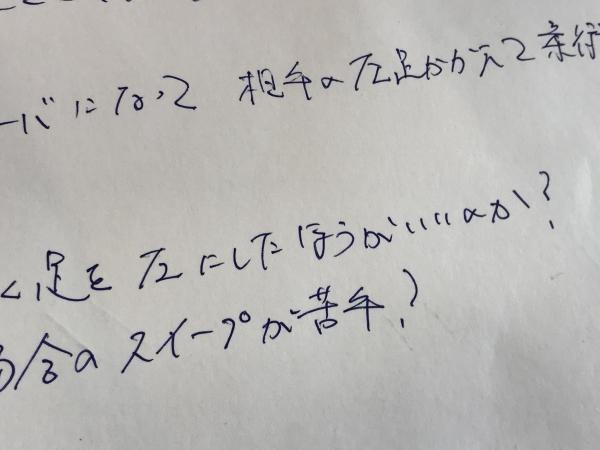 ーバになって 相手の左足かかえて
く足を左にしたほうがいいのか?
場合のスイープが苦手?